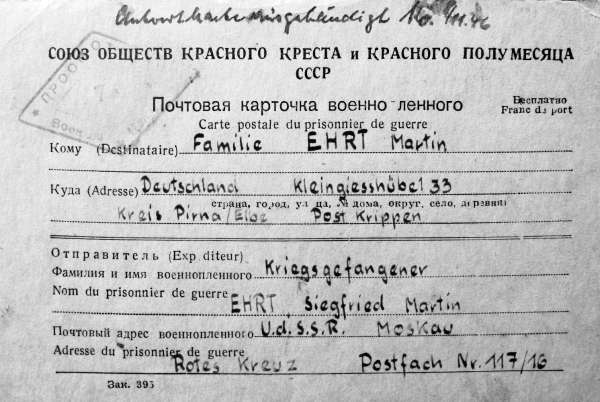 Antwortkarte ausgehändigt
СОЮЗ ОБЩЕСТВ КРАСНОГО КРЕСТА и КРАСНОГО ПОЛУМЕСЯЦА
СССР
Почтовая карточка военно-ленного
Бесплатно
Carte postale du prisonnier de guerre
Franc de port
Кому (Destinataire) Familie EHRT Martin
Куда (Adresse) Deutschland Kleingiesshübel 33
страна, город, улица, № дома, округ, село, деревня
Kreis Pirna/Elbe Post Krippen
Отправитель (Exp diteur)
Фамилия и имя военнопленного Kriegsgefangener
Nom du prisonnier de guerre
EHRT Siegfried Martin
Почтовый адрес военнопленного U.d.S.S.R. Moskau
Adresse du prisonnier de guerre
Rotes Kreuz Postfach Nr. 117/16
Зак. 395